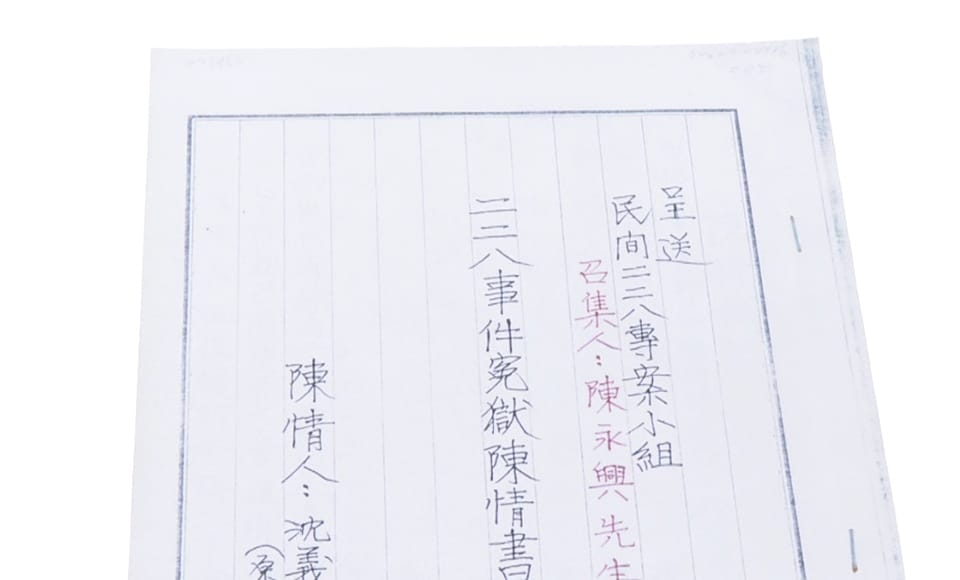 呈送
民间二二八專案小組
召集人：陳永興先生
二二八事件冤獄陳情書
陳情人：沈義
（原